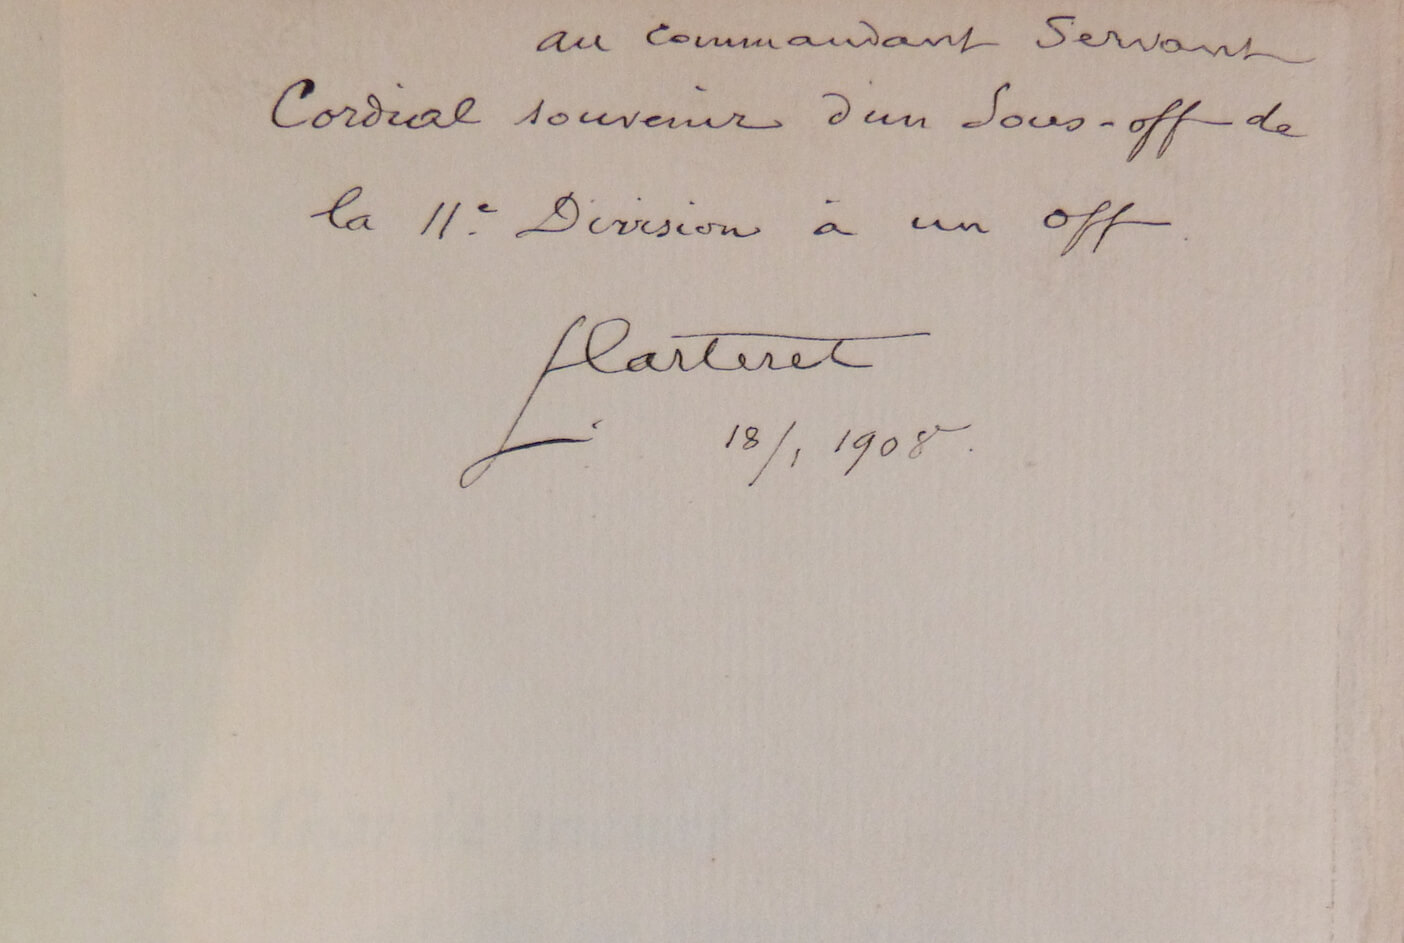 au commandant Servant
Cordial souvenir d'un Sous-off de
la 11e Division à un off.
L. Carteret
18/1 1908.